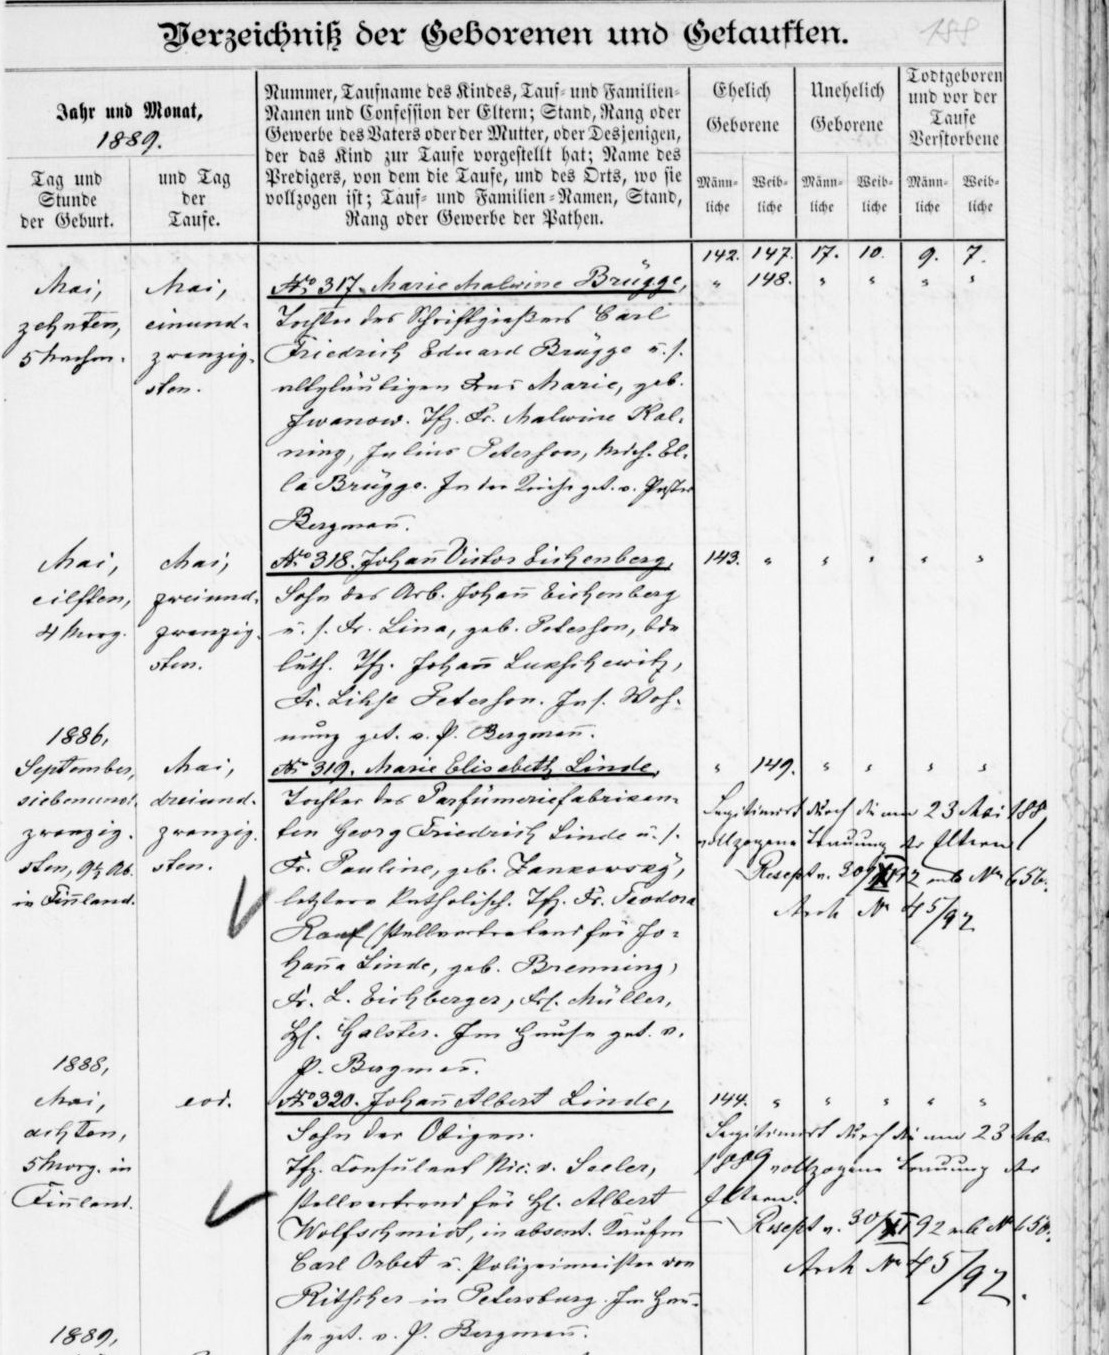 Verzeichniß der Geborenen und Getauften.
188
Jahr und Monat,
1889.
Tag und
Stunde
der Geburt.
und Tag
der
Taufe.
Nummer, Taufname des Kindes, Tauf- und Familien-
Namen und Confession der Eltern; Stand, Rang oder
Gewerbe des Vaters oder der Mutter, oder Desjenigen,
der das Kind zur Taufe vorgestellt hat; Name des
Predigers, von dem die Taufe, und des Orts, wo sie
vollzogen ist; Tauf- und Familien-Namen, Stand,
Rang oder Gewerbe der Pathen.
Ehelich
Geborene
Unehelich
Geborene
Todtgeboren
und vor der
Taufe
Verstorbene
Männ-
liche
Weib-
liche
Männ-
liche
Weib-
liche
Männ-
liche
Weib-
liche
142. 147. 17. 10. 9. 7.
Mai,
zehnten,
5 Nachm.
Mai,
einund-
zwanzig-
sten.
No 317. Marie Malwine Brügge,
Tochter des Schriftgießers Carl
Friedrich Eduard Brügge u. s.
altgläubigen Frau Marie, geb.
Iwanow. Tfz. Fr. Malwine Kal-
ning, Julius Peterson, Mdch. El-
la Brügge. In der Kirche get. v. Pastor
Bergmañ.
" 148. " " " "
Mai,
eilften,
4 Morg.
Mai,
zweiund-
zwanzig-
sten.
No 318. Johañ Victor Eichenberg,
Sohn des Arb. Johañ Eichenberg
u. s. Fr. Lina, geb. Peterson, bde
luth. Tfz. Johañ Lukschewitz,
Fr. Lihse Peterson. In s. Woh-
nung get. v. P. Bergmañ.
143. " " " " "
1886,
September,
siebenund-
zwanzig-
sten, 9½ Ab.
in Fiñland.
Mai,
dreiund-
zwanzig-
sten.
No 319. Marie Elisabeth Linde,
Tochter des Parfümeriefabrikan-
ten Georg Friedrich Linde u. s.
Fr. Pauline, geb. Jankowsky,
letztere katholisch. Tfz. Fr. Teodora
Rauf stellvertretend für Jo-
hañа Linde, geb. Brenning,
Fr. L. Eichberger, Frl. Müller,
H. Galster. Im Hause get. v.
P. Bergmañ.
" 149. " " " "
Legitimirt durch die am 23 Mai 188
vollzogene Trauung der Eltern
Resept v. 30/XI 92 sub No 656.
Arch No 45/92
1888,
Mai,
achten,
5 Morg. in
Fiñland.
eod.
No 320. Johañ Albert Linde,
Sohn der Obigen.
Tfz. Consulent Nic. v. Seeler,
stellvertretend für H. Albert
Wolfschmidt, in absent. Kaufm
Carl Orbet u. Polizeimeister von
Ritscher in Petersburg. Im Hau-
se get. v. P. Bergmañ.
144. " " " " "
Legitimirt durch die am 23. Mai
1889 vollzogene Trauung der
Eltern.
Resept v. 30/XI 92 sub No 656.
Arch No 45/92.
1889,